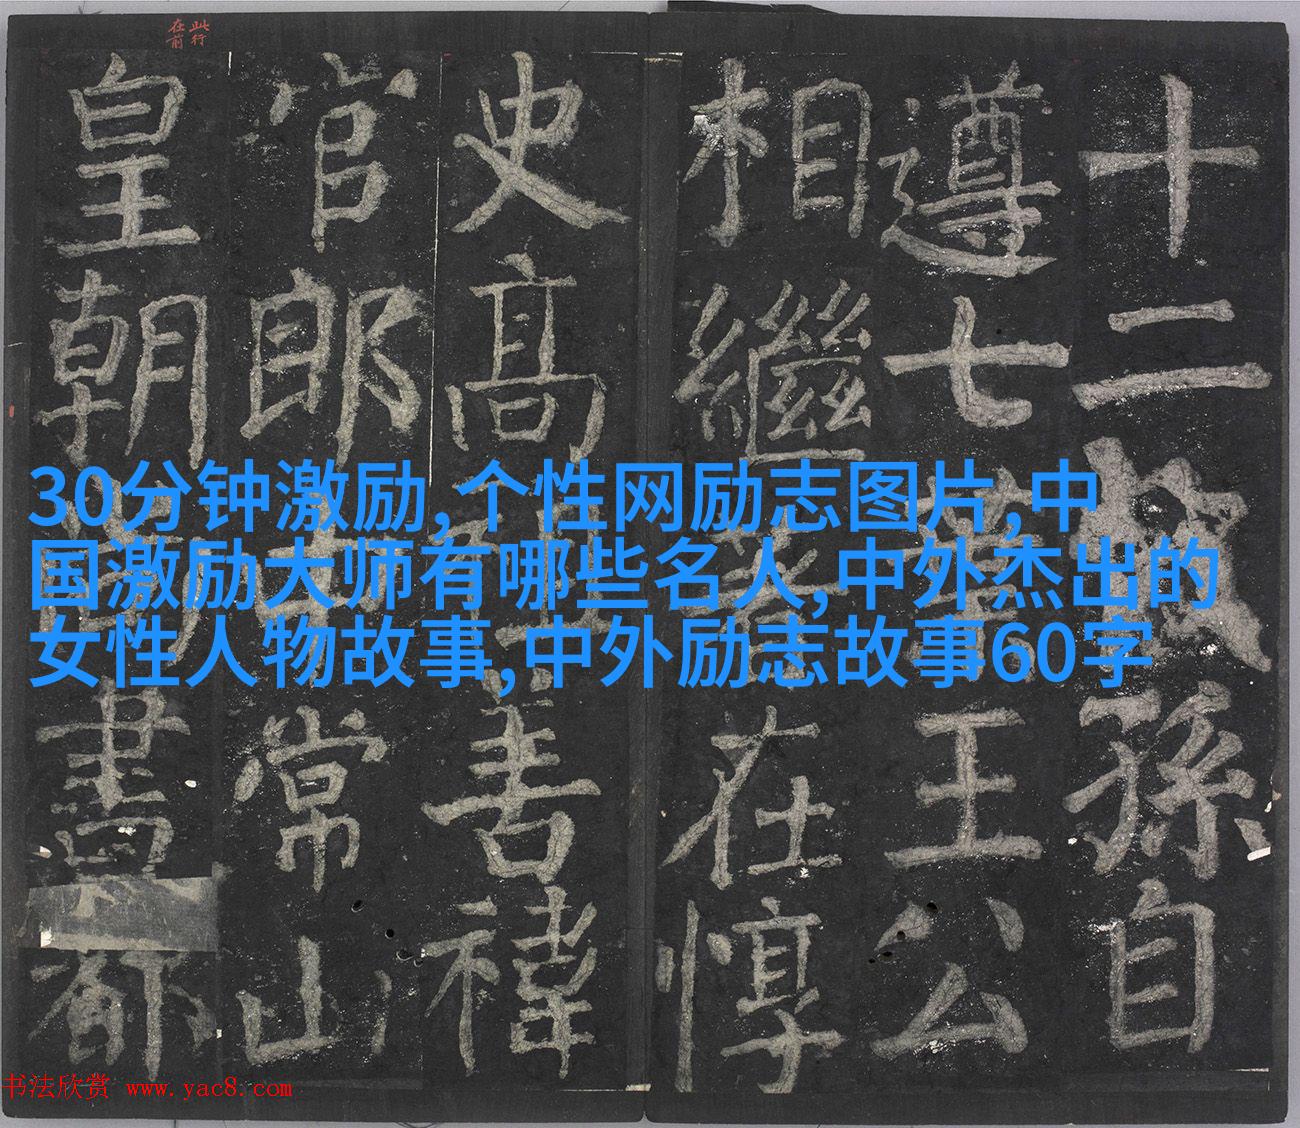 此行
在前
十二孫自
遵七王公
相繼在惇
史高善禕
官郎常山
皇朝書都
30分钟激励,个性网励志图片,中
国激励大师有哪些名人,中外杰出的
女性人物故事,中外励志故事60字
书法欣赏 www.yac8.com